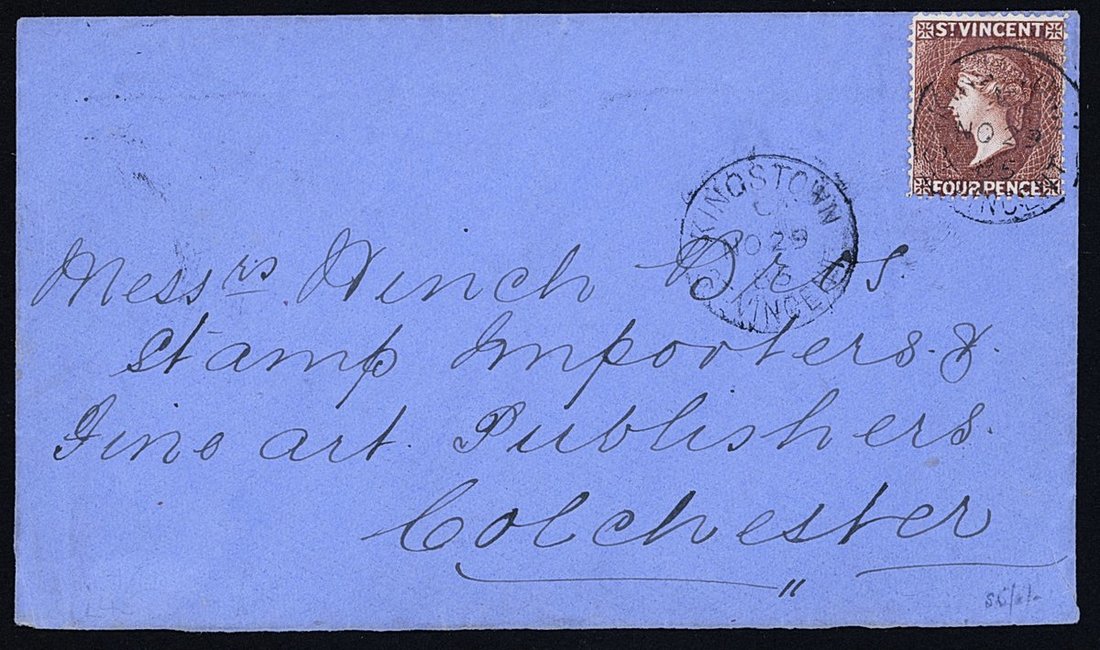 ST VINCENT
NO
FOUR PENCE
KINGSTOWN
NO 29
ST. VINCENT
Messrs Winch Bros.
Stamp Importers. &.
Fine art. Publishers.
Colchester